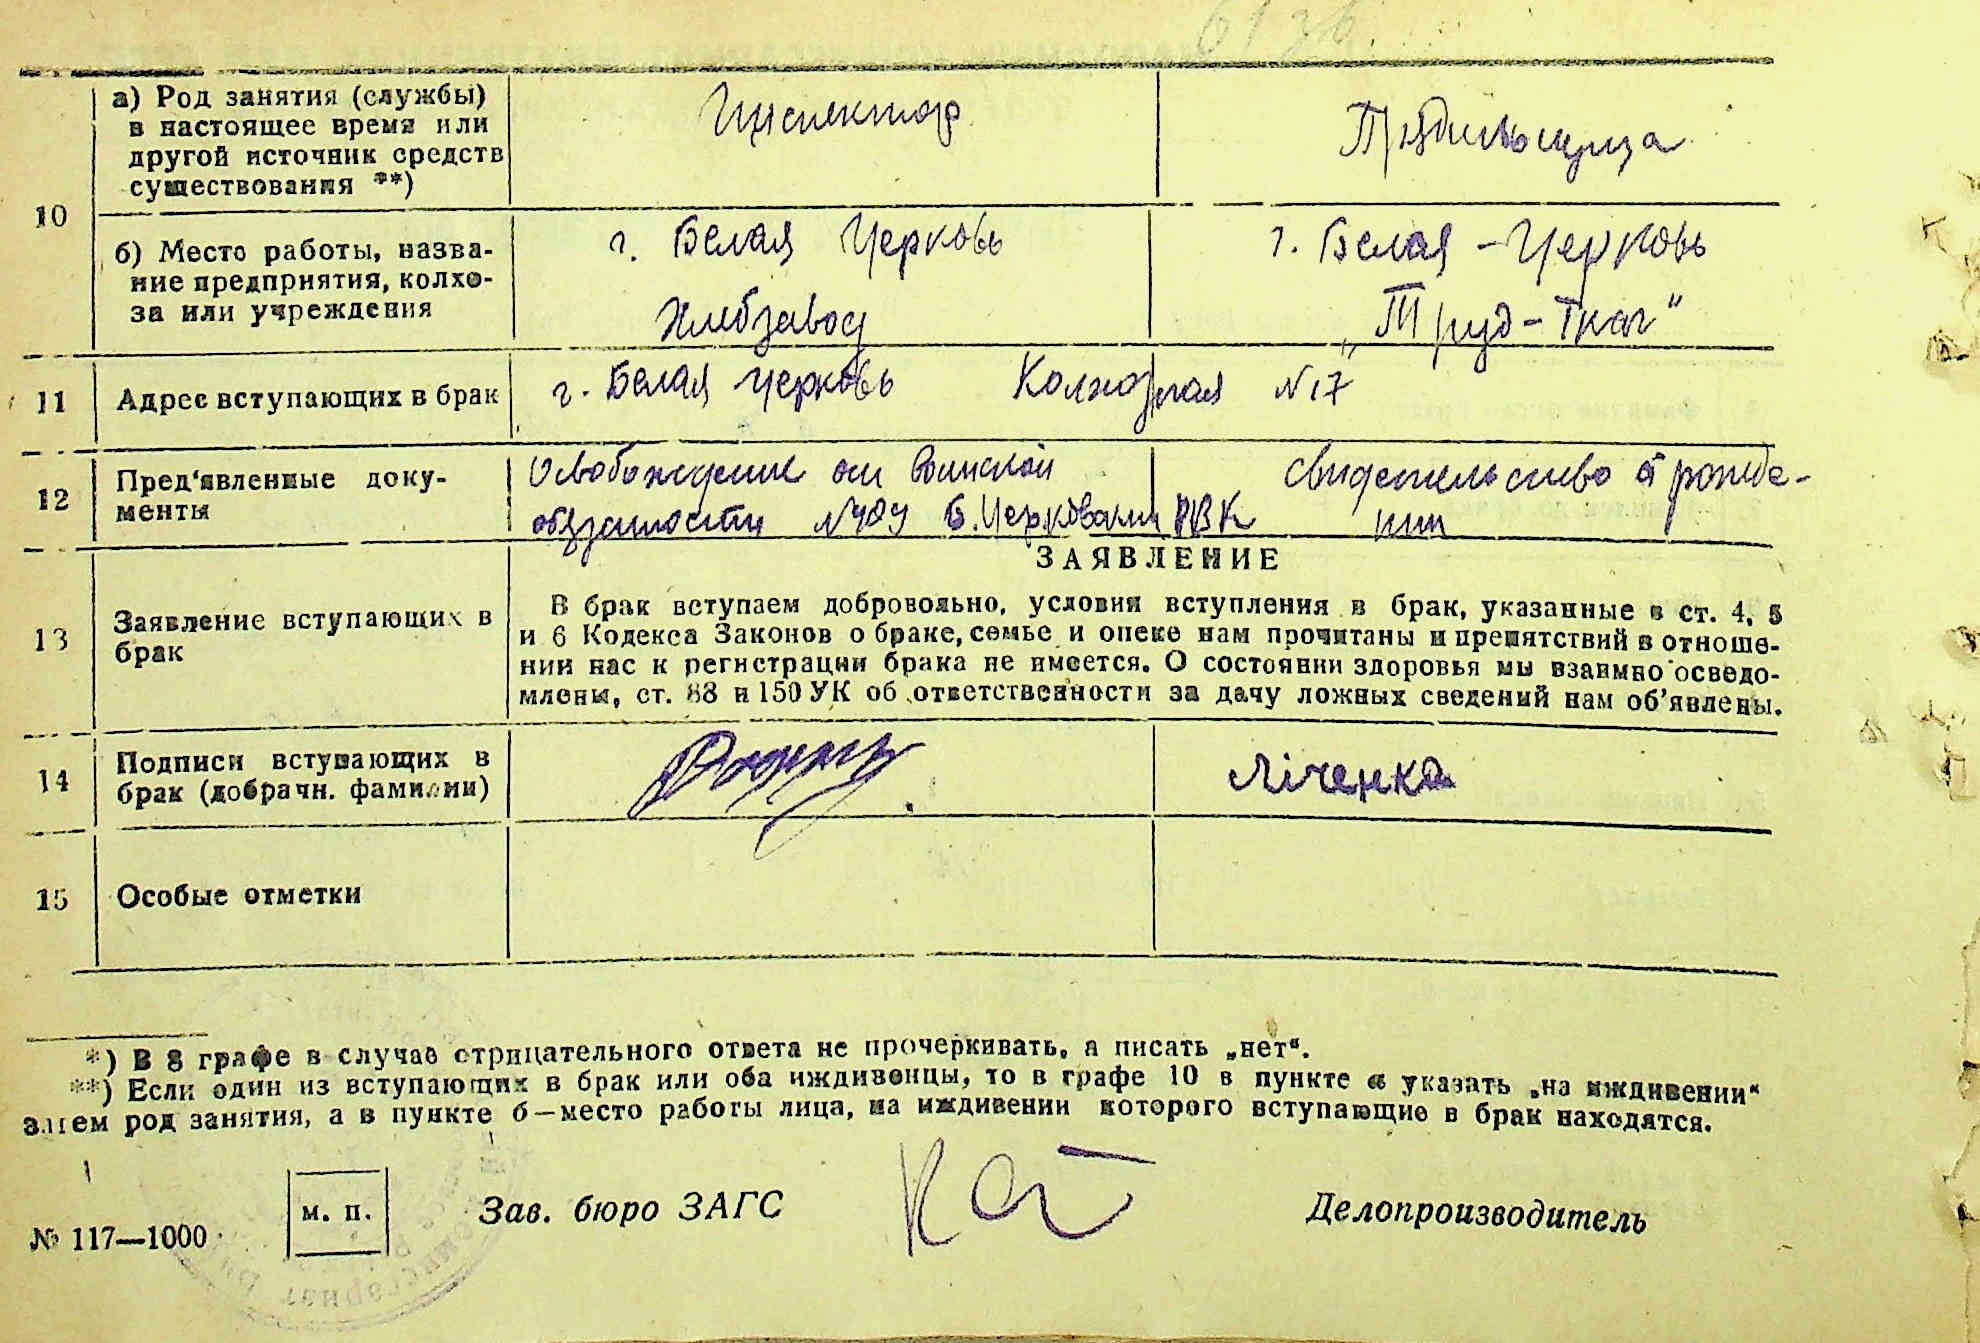 10
а) Род занятия (службы)
в настоящее время или
другой источник средств
существования **)
Инспектор
б) Место работы, назва-
ние предприятия, колхо-
за или учреждения
г. Белая Церковь
Хлебзавод
г. Белая-Церковь
„Труд-Ткач"
11
Адрес вступающих в брак
г. Белая Церковь Колхозная №17
12
Пред'явленные доку-
менты
Освобождение от воинской
обязаности Б. Церковским РВК
свидетельство о рожде-
нии
13
Заявление вступающих в
брак
ЗАЯВЛЕНИЕ
В брак вступаем добровольно, условия вступления в брак, указанные в ст. 4, 5
и 6 Кодекса Законов о браке, семье и опеке нам прочитаны и препятствий в отноше-
нии нас к регистрации брака не имеется. О состоянии здоровья мы взаимно осведо-
млены, ст. 88 и 150 УК об ответственности за дачу ложных сведений нам об'явлены.
14
Подписи вступающих в
брак (добрачн. фамилии)
15
Особые отметки
*) В 8 графе в случае отрицательного ответа не прочеркивать, а писать „нет".
**) Если один из вступающих в брак или оба иждивенцы, то в графе 10 в пункте а указать „на иждивении"
затем род занятия, а в пункте б—место работы лица, на иждивении которого вступающие в брак находятся.
№ 117—1000
м. п.
Зав. бюро ЗАГС
Делопроизводитель